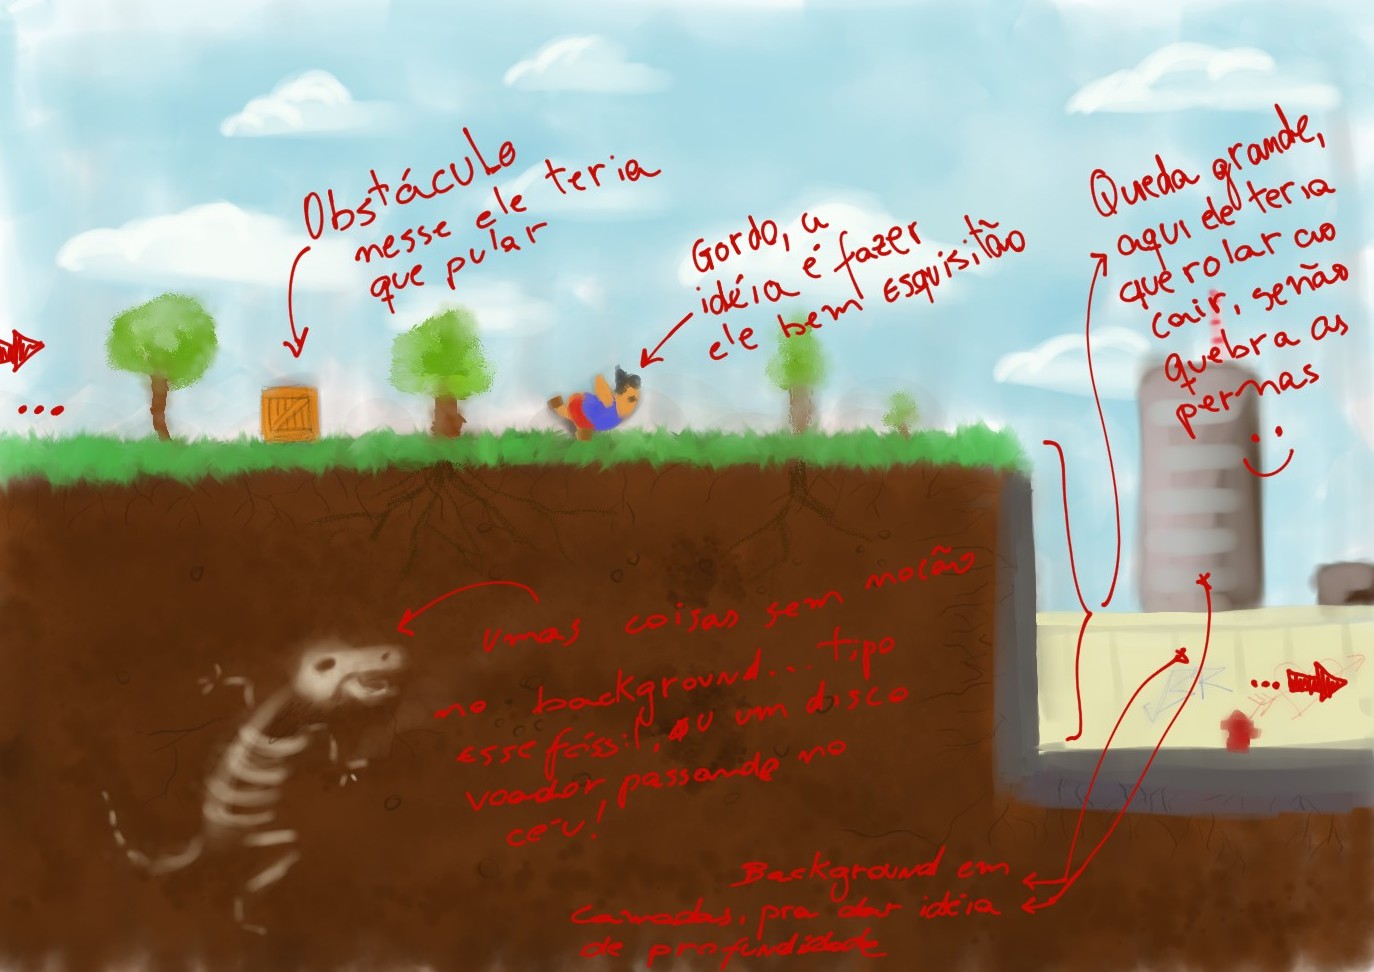 Obstáculo
nesse ele teria
que pular
Gordo, a
idéia é fazer
ele bem esquisitão
Queda grande,
aqui ele teria
que rolar ao
cair, senão
quebra as
pernas
:)
umas coisas sem noção
no background... tipo
esse fóssil, ou um disco
voador passando no
céu!
Background em
camadas, pra dar idéia
de profundidade